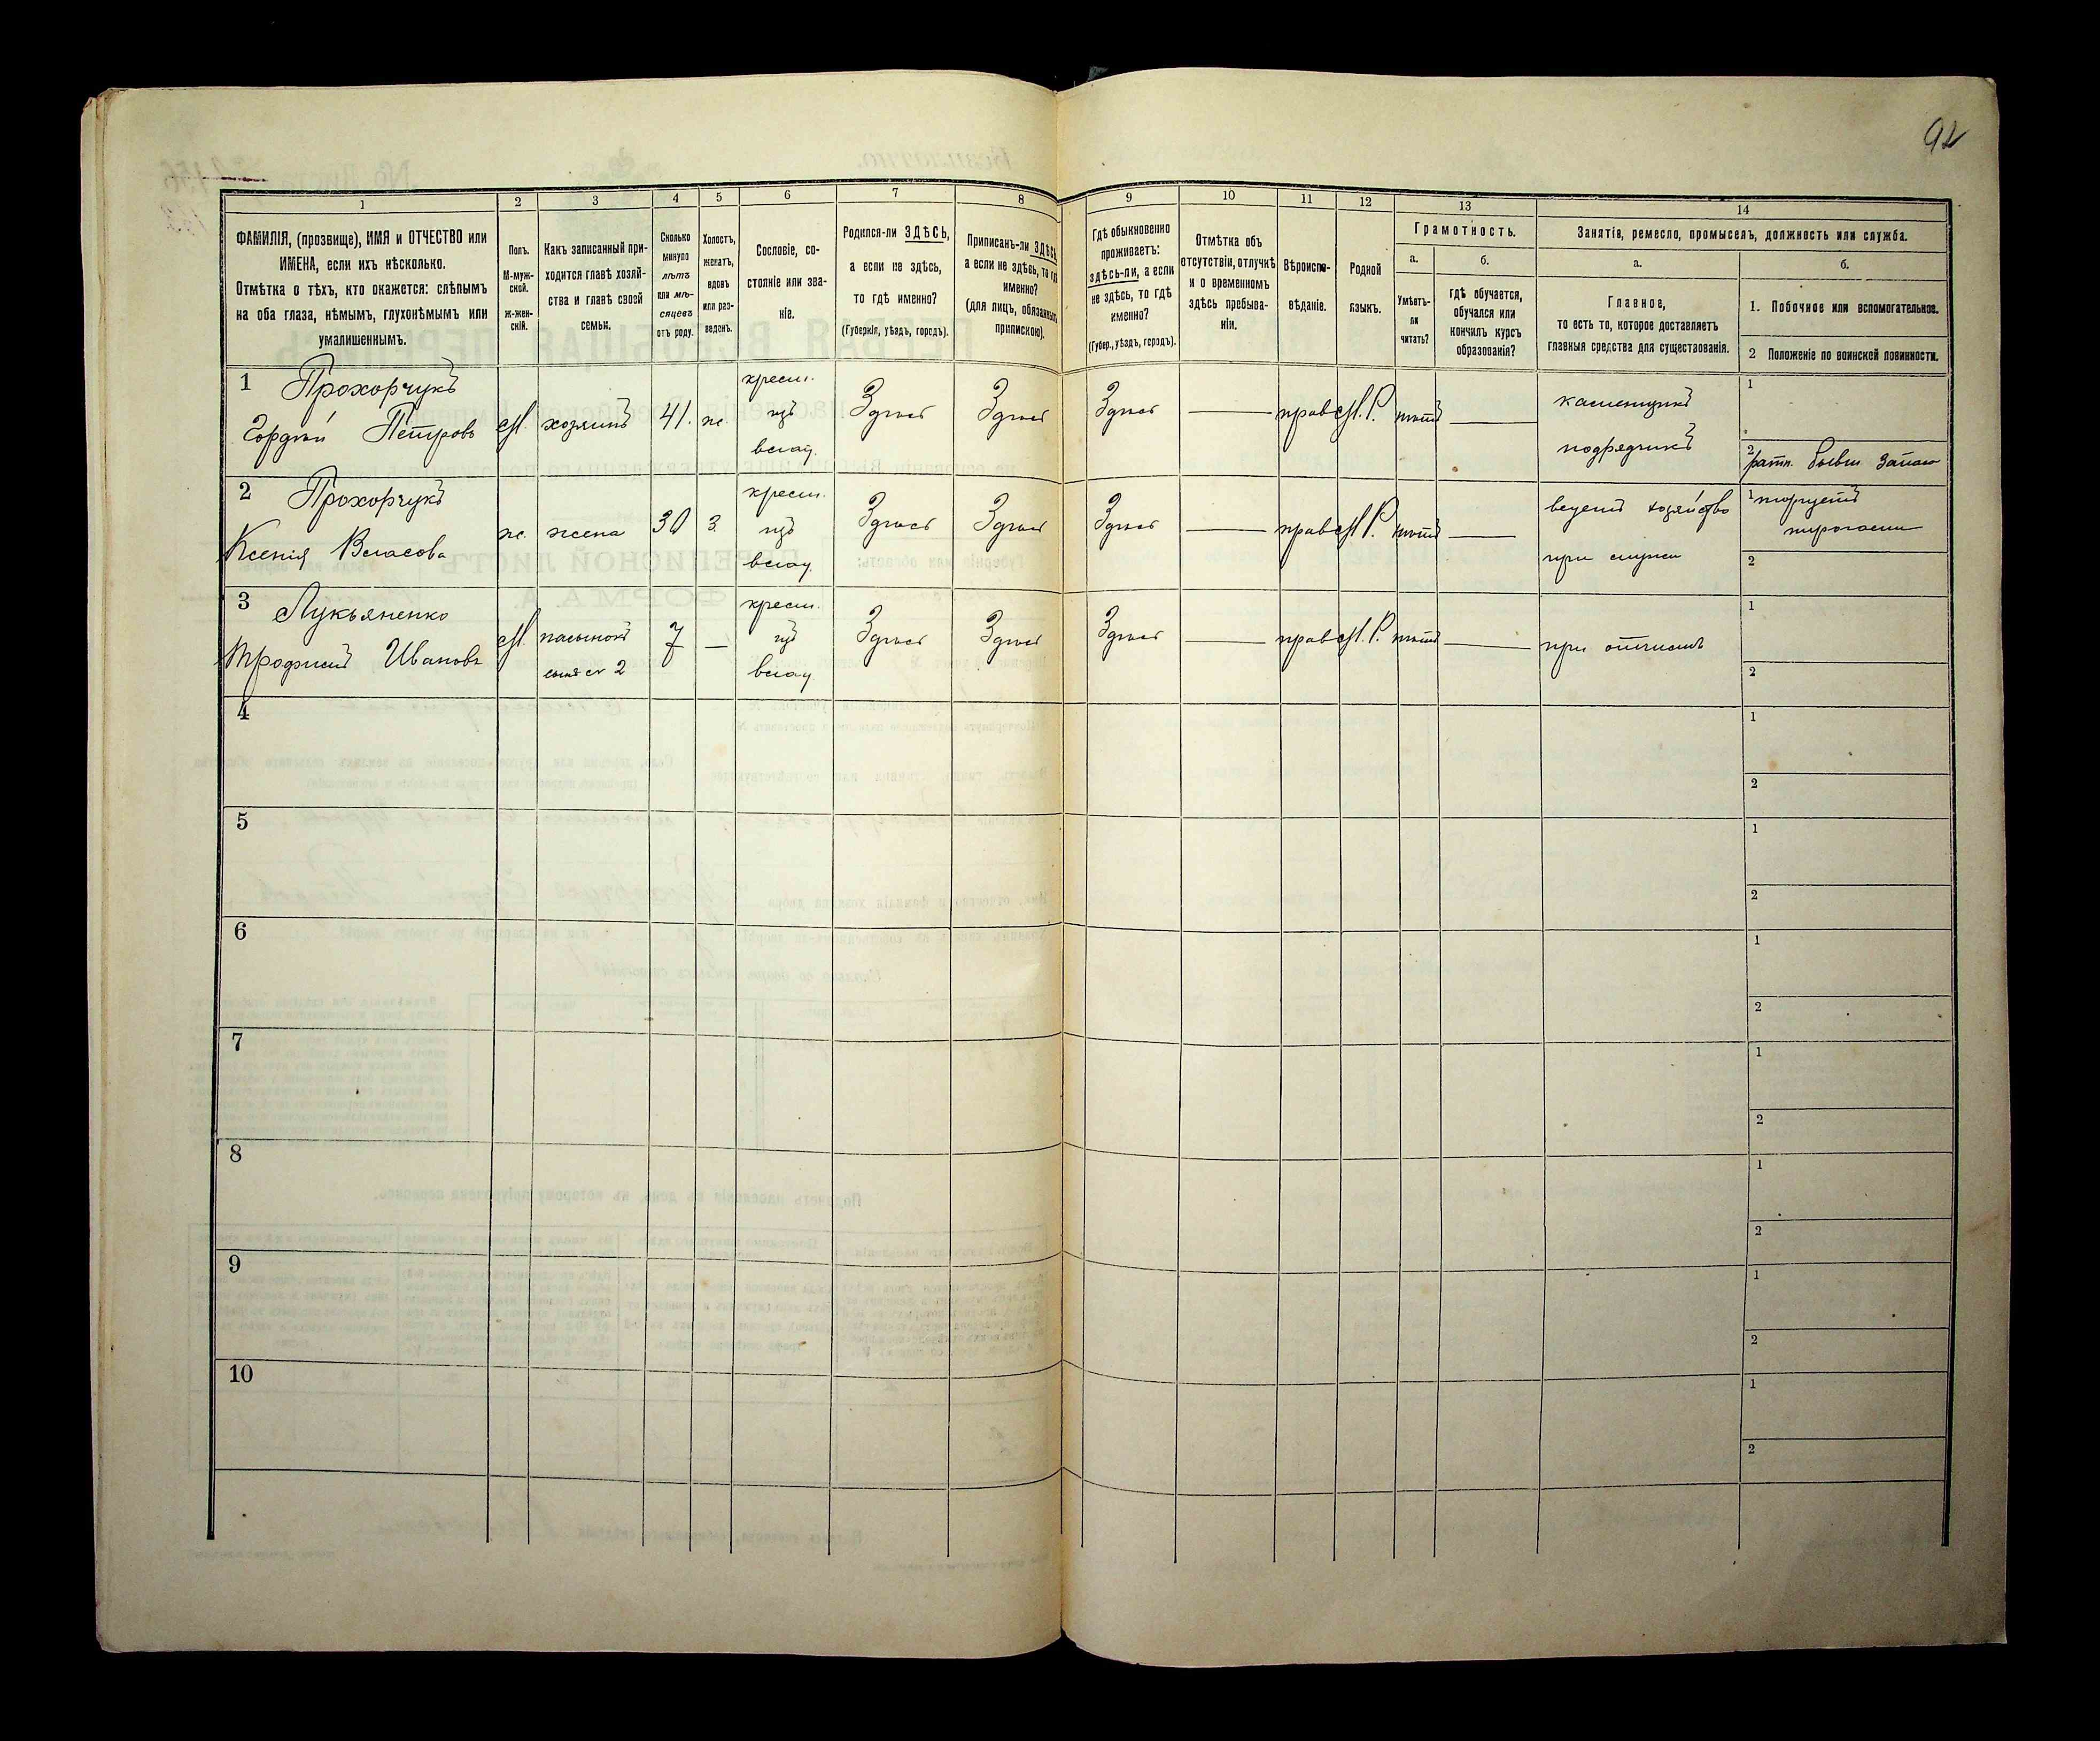 92
1 2 3 4 5 6 7 8 9 10 11 12 13 14
ФАМИЛІЯ, (прозвище), ИМЯ и ОТЧЕСТВО или
ИМЕНА, если ихъ нѣсколько.
Отмѣтка о тѣхъ, кто окажется: слѣпымъ
на оба глаза, нѣмымъ, глухонѣмымъ или
умалишеннымъ.
Полъ.
М-муж-
ской.
Ж-жен-
скій.
Какъ записанный при-
ходится главѣ хозяй-
ства и главѣ своей
семьи.
Сколько
минуло
лѣтъ
или мѣ-
сяцевъ
отъ роду.
Холостъ,
женатъ,
вдовъ
или раз-
веденъ.
Сословіе, со-
стояніе или зва-
ніе.
Родился-ли ЗДѢСЬ,
а если не здѣсь,
то гдѣ именно?
(Губернія, уѣздъ, городъ).
Приписанъ-ли ЗДѢСЬ,
а если не здѣсь, то гдѣ
именно?
(для лицъ, обязанныхъ
припискою).
Гдѣ обыкновенно
проживаетъ:
здѣсь-ли, а если
не здѣсь, то гдѣ
именно?
(Губер., уѣздъ, городъ).
Отмѣтка объ
отсутствіи, отлучкѣ
и о временномъ
здѣсь пребыва-
ніи.
Вѣроиспо-
вѣданіе.
Родной
языкъ.
Грамотность.
а.
Умѣетъ-
ли
читать?
б.
гдѣ обучается,
обучался или
кончилъ курсъ
образованія?
Занятія, ремесло, промыселъ, должность или служба.
а.
Главное,
то есть то, которое доставляетъ
главныя средства для существованія.
б.
1. Побочное или вспомогательное.
2 Положеніе по воинской повинности.
1 Прохорчукъ
Гордѣй Петровъ
М. хозяинъ 41. ж.
крест.
изъ
влад.
Здѣсь Здѣсь Здѣсь — прав М.Р. нѣтъ —
каменщикъ
подрядчикъ
1
2 ратн. бывш запас
2 Прохорчукъ
Ксенія Власова
ж. жена 30 з
крест.
изъ
влад.
Здѣсь Здѣсь Здѣсь — прав М.Р. нѣтъ —
ведетъ хозяйство
при мужи
1 торгуетъ
пирогами
2
3 Лукьяненко
Трофимъ Ивановъ
М. пасынокъ
сынъ № 2
7 —
крест.
изъ
влад
Здѣсь Здѣсь Здѣсь — прав М.Р. нѣтъ —
при отчимѣ
1
2
4
1
2
5
1
2
6
1
2
7
1
2
8
1
2
9
1
2
10
1
2